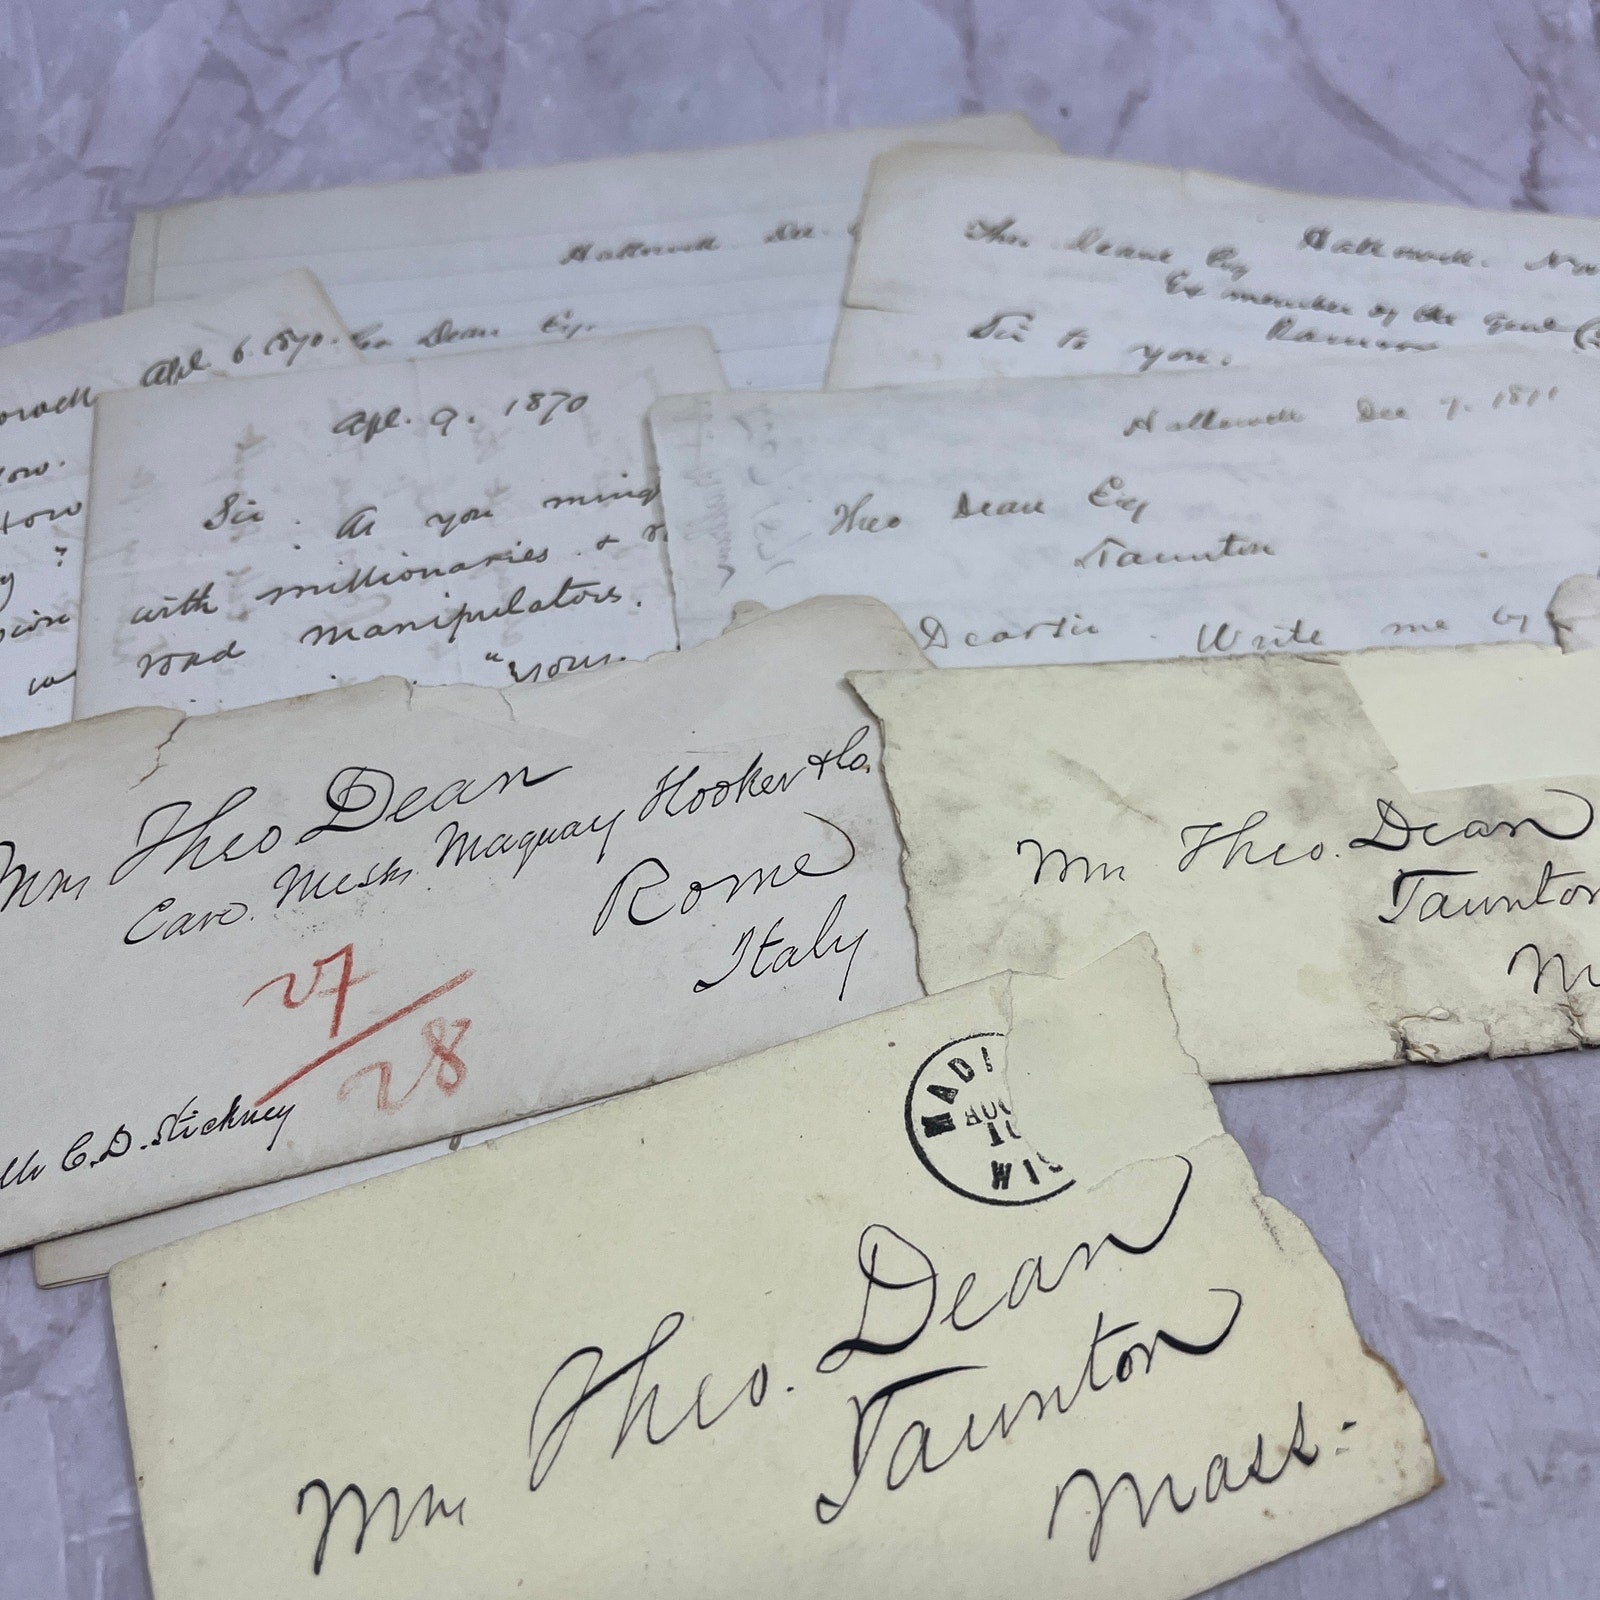 Hallowell Dec.
Theo Dean Esq.
Theo. Deane Esq
Hallowell. Nov
Ex member of the Genl
Sir to you.
Apl. 6. 1870.
Apl. 9. 1870
Sir. As you ming
with millionaries. &
road manipulators.
"yours.
Hallowell Dec 7. 1871
Theo Dean Esq
Taunton
Dear Sir. Write me by
Mrs Theo Dean
Care. Messrs. Maquay Hooker & Co.
Rome
Italy
27
28
C. D. Stickney
Mrs Theo. Dean
Taunton
M
MADI
AUG
10
WIS
Mrs Theo. Dean
Taunton
Mass: